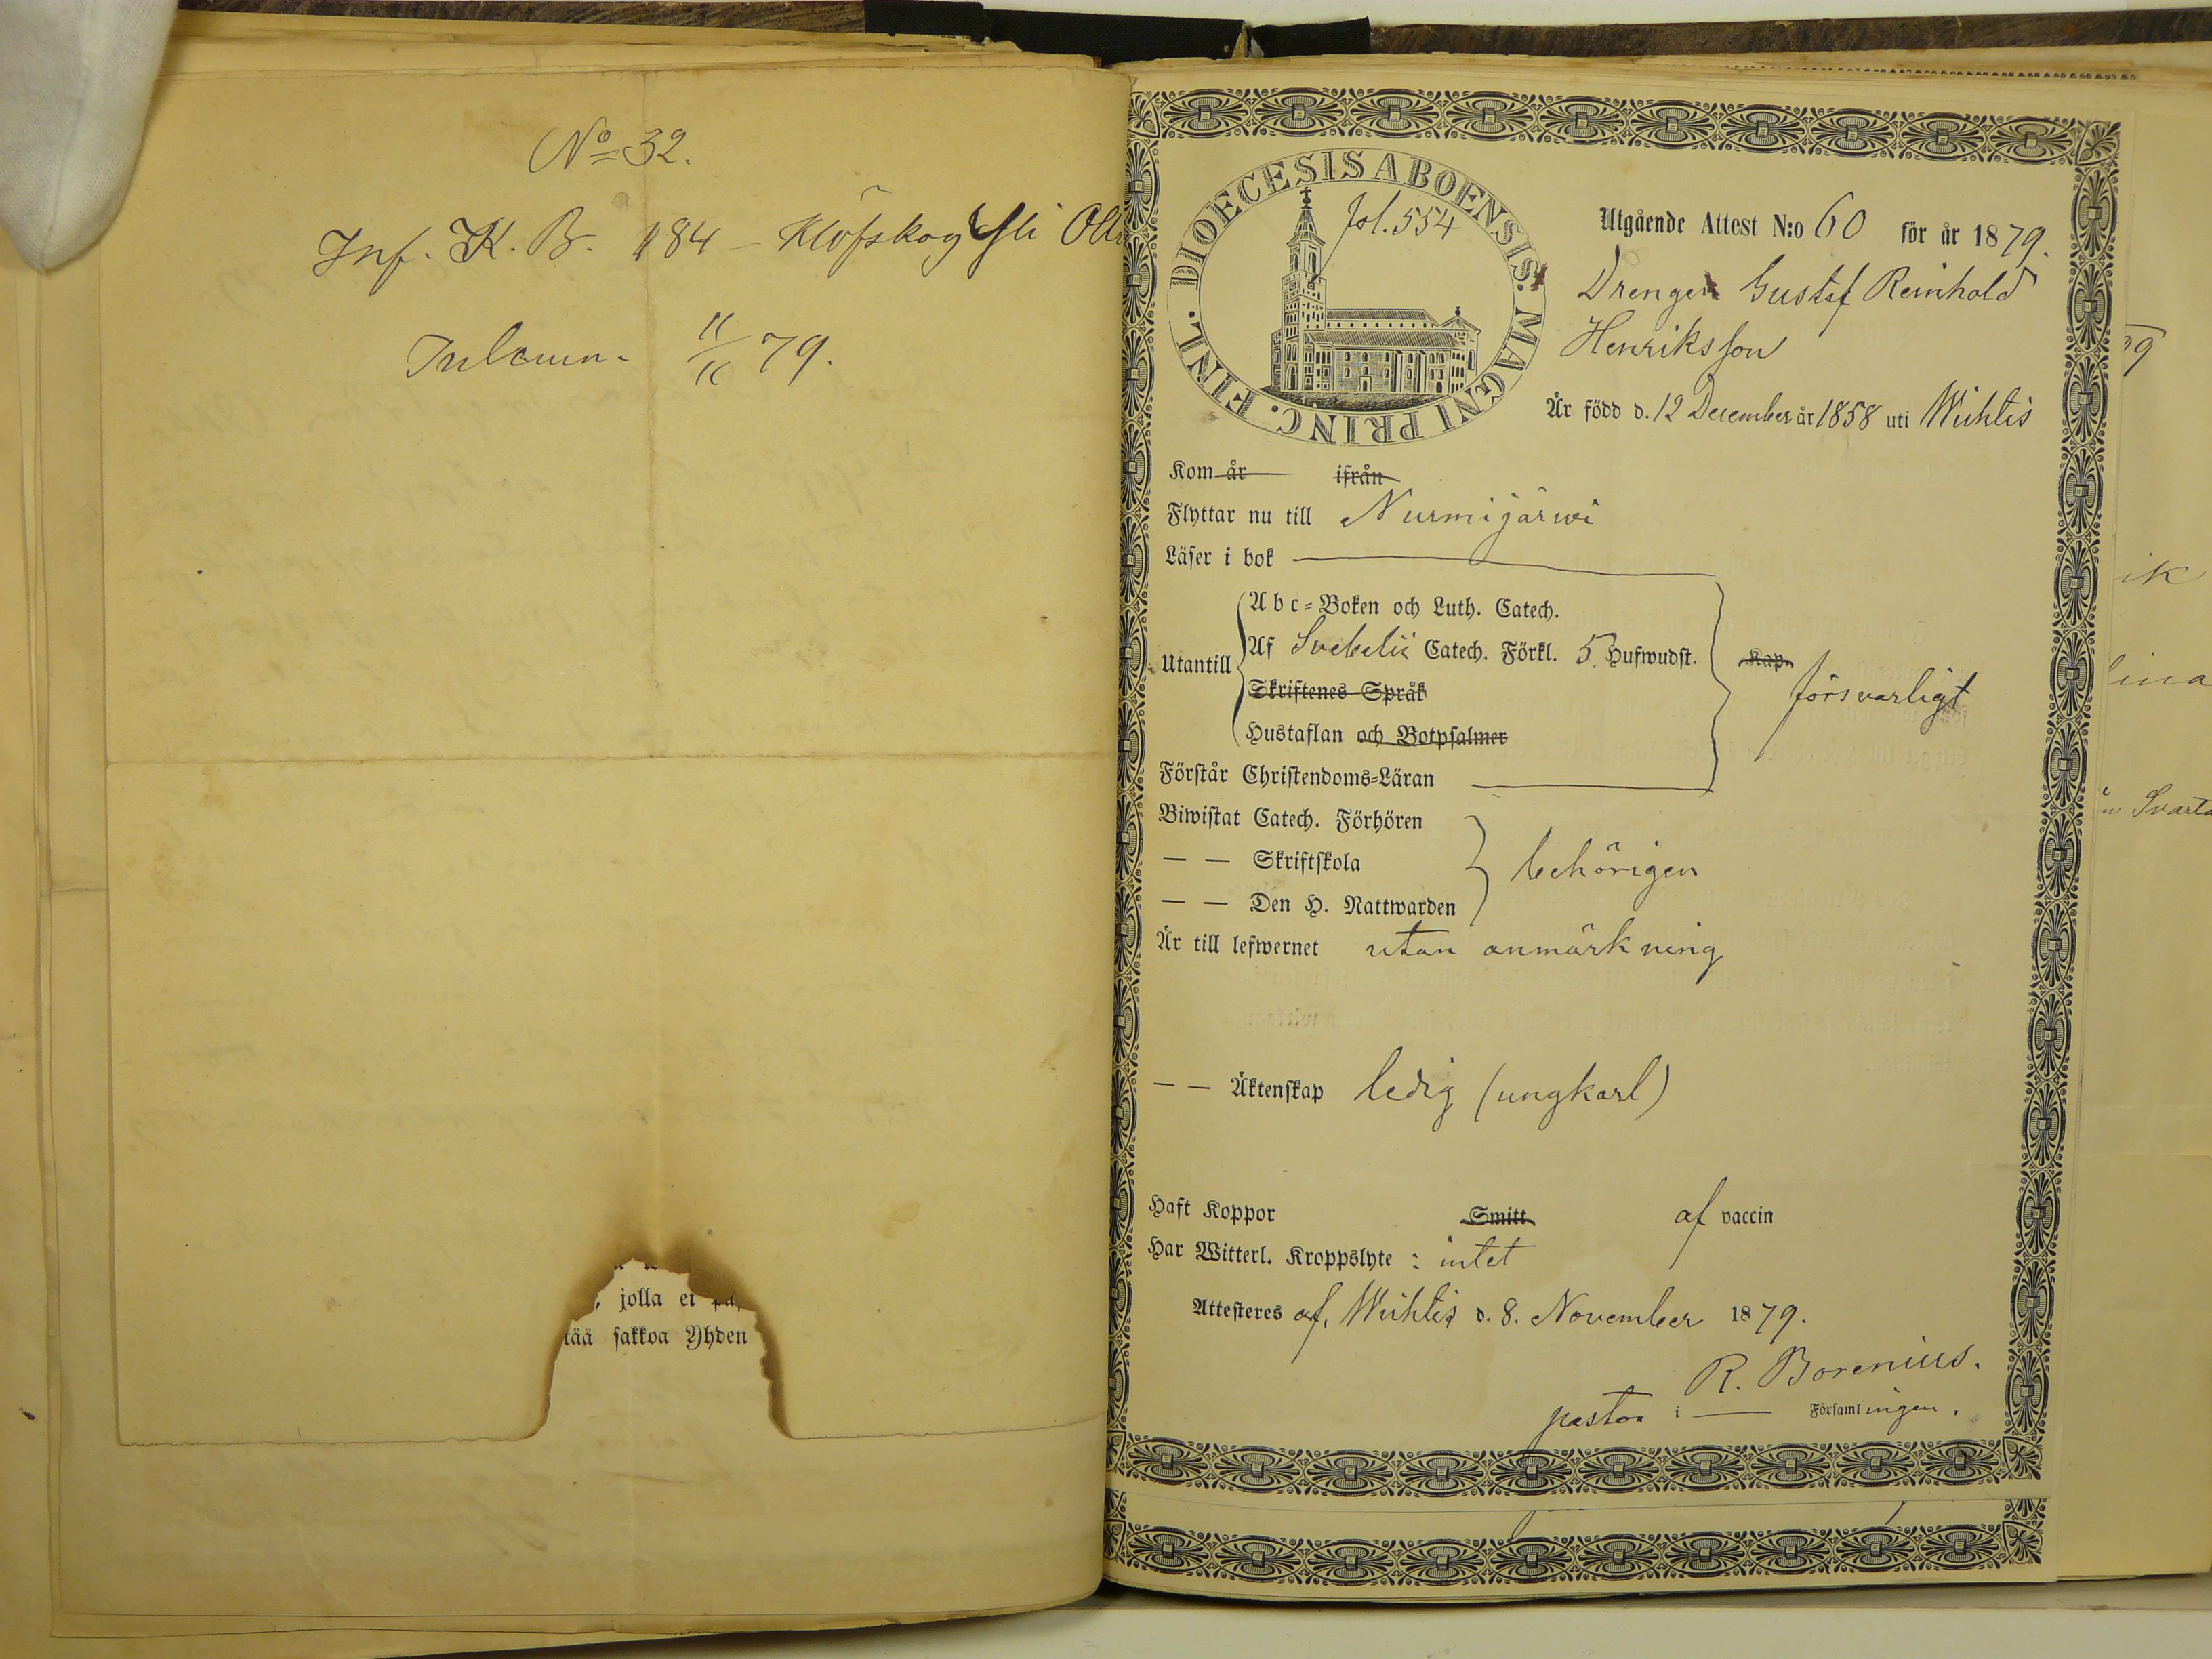 No 32.
Inf. K. B. 184 – Klöfskog Yli Oll
Inlemn. 11/11 79.
, jolla ei
tää sakkoa Yhden
DIOECESIS ABOENSIS. MAGNI PRINC. FINL.
fol. 554
Utgående Attest N:o 60 för år 1879.
Drengen Gustaf Reinhold
Henriksson
Är född d. 12 December år 1858 uti Wichtis
Kom år ifrån
Flyttar nu till Nurmijärwi
Läser i bok
Utantill
Abc-Boken och Luth. Catech.
Af Svebelii Catech. Förkl. 5 Hufwudst. Kap.
Skriftenes Språk
försvarligt
Hustaflan och Botpsalmer
Förstår Christendoms-Läran
Biwistat Catech. Förhören
— — Skriftskola
behörigen
— — Den H. Nattwarden
Är till lefwernet utan anmärkning
— — Äktenskap ledig (ungkarl)
Haft Koppor Smitt af vaccin
Har Witterl. Kroppslyte : intet
Attesteres af, Wichtis d. 8. November 1879.
R. Borenius.
pastor i — Församlingen.
79
ik
lina
n Svarta